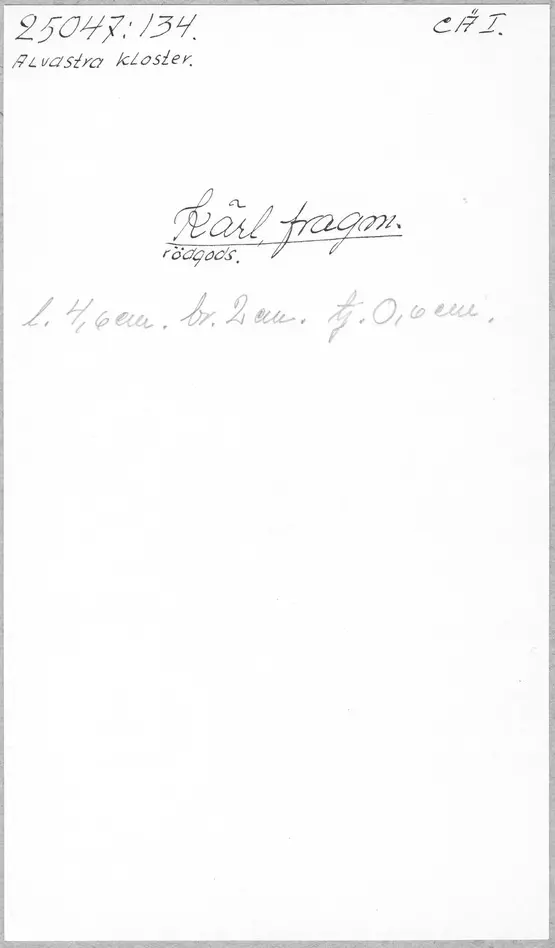 25047:134. CÄI.
Alvastra kloster.
Kärl, fragm.
rödgods.
l. 4,6 cm. br. 2 cm. tj. 0,6 cm.